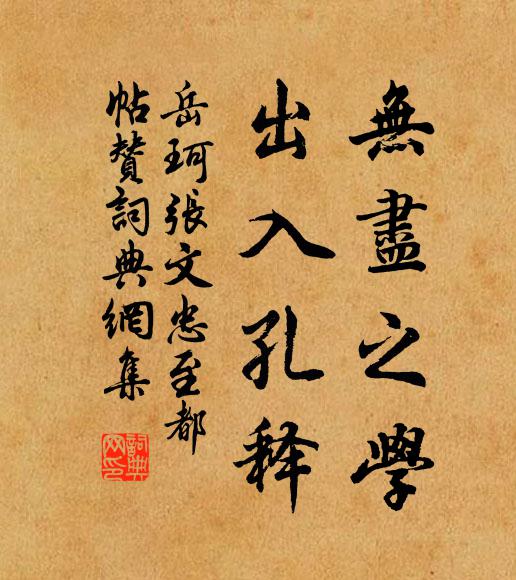 無盡之學
出入孔释
岳珂張文忠至都
帖贊詞典網集
詞典网印